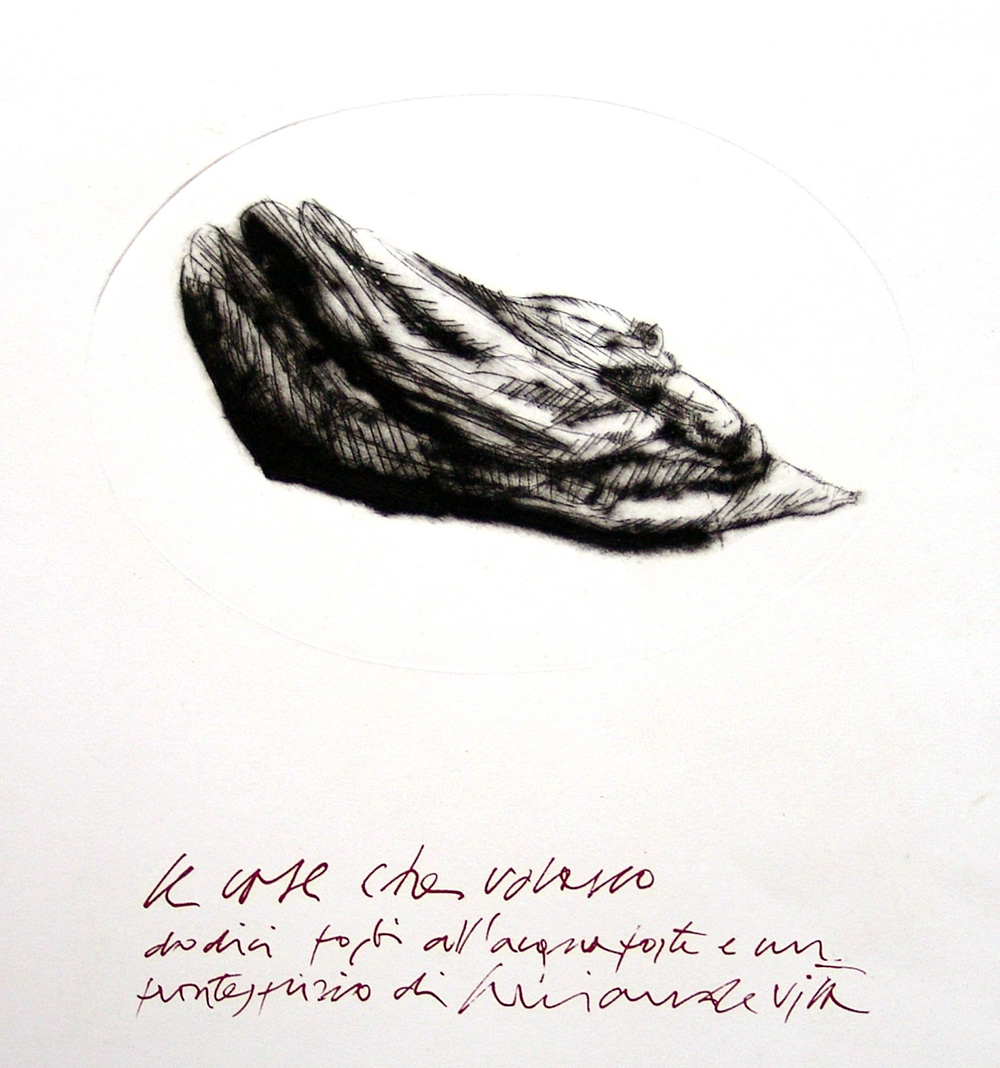 le cose che volano
dodici fogli all'acquaforte e un
frontespizio di Luciano de Vita